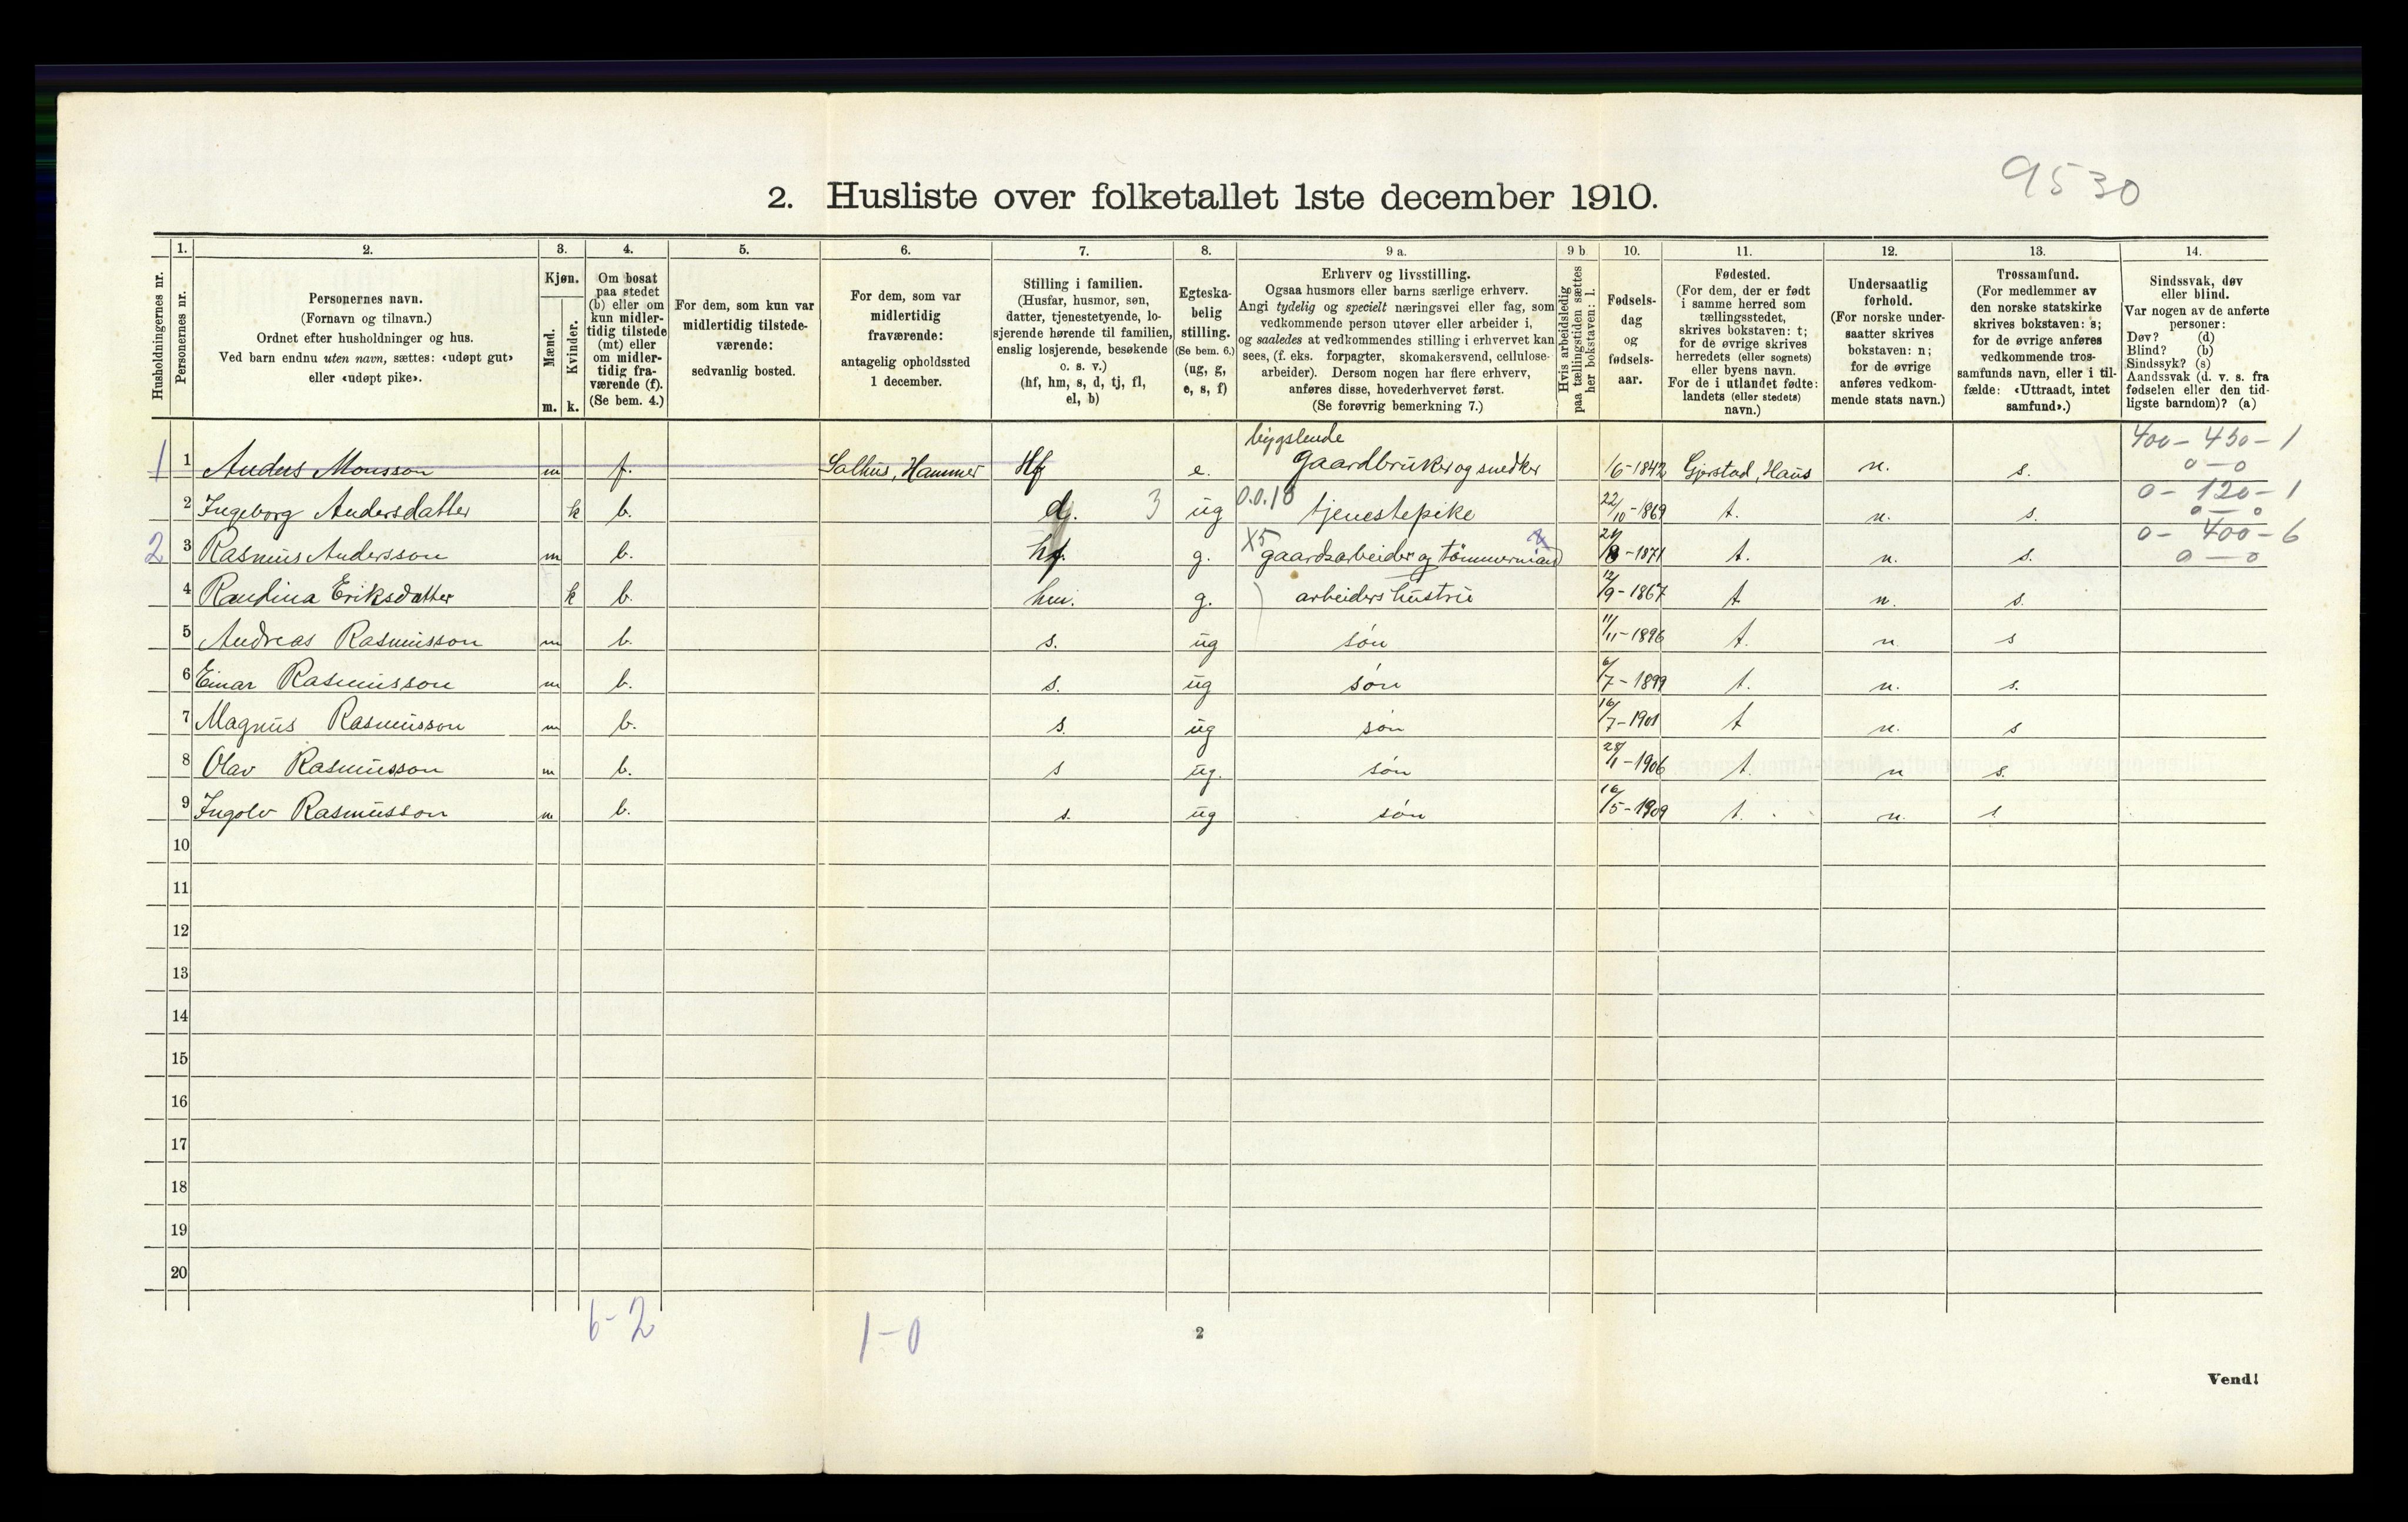 9530
2. Husliste over folketallet 1ste december 1910.
Husholdningernes nr.
1.
Personernes nr.
2.
Personernes navn.
(Fornavn og tilnavn.)
Ordnet efter husholdninger og hus.
Ved barn endnu uten navn, sættes: «udøpt gut»
eller «udøpt pike».
3.
Kjøn.
Mænd.
Kvinder.
m. k.
4.
Om bosat
paa stedet
(b) eller om
kun midler-
tidig tilstede
(mt) eller
om midler-
tidig fra-
værende (f).
(Se bem. 4.)
5.
For dem, som kun var
midlertidig tilstede-
værende:
sedvanlig bosted.
6.
For dem, som var
midlertidig
fraværende:
antagelig opholdssted
1 december.
7.
Stilling i familien.
(Husfar, husmor, søn,
datter, tjenestetyende, lo-
sjerende hørende til familien,
enslig losjerende, besøkende
o. s. v.)
(hf, hm, s, d, tj, fl,
el, b)
8.
Egteska-
belig
stilling.
(Se bem. 6.)
(ug, g,
e, s, f)
9 a.
Erhverv og livsstilling.
Ogsaa husmors eller barns særlige erhverv.
Angi tydelig og specielt næringsvei eller fag, som
vedkommende person utøver eller arbeider i,
og saaledes at vedkommendes stilling i erhvervet kan
sees, (f. eks. forpagter, skomakersvend, cellulose-
arbeider). Dersom nogen har flere erhverv,
anføres disse, hovederhvervet først.
(Se forøvrig bemerkning 7.)
9 b
Hvis arbeidsledig
paa tællingstiden sættes
her bokstaven: l.
10.
Fødsels-
dag
og
fødsels-
aar.
11.
Fødested.
(For dem, der er født
i samme herred som
tællingsstedet,
skrives bokstaven: t;
for de øvrige skrives
herredets (eller sognets)
eller byens navn.
For de i utlandet fødte:
landets (eller stedets)
navn.)
12.
Undersaatlig
forhold.
(For norske under-
saatter skrives
bokstaven: n;
for de øvrige
anføres vedkom-
mende stats navn.)
13.
Trossamfund.
(For medlemmer av
den norske statskirke
skrives bokstaven: s;
for de øvrige anføres
vedkommende tros-
samfunds navn, eller i til-
fælde: «Uttraadt, intet
samfund».)
14.
Sindssvak, døv
eller blind.
Var nogen av de anførte
personer:
Døv? (d)
Blind? (b)
Sindssyk? (s)
Aandssvak (d. v. s. fra
fødselen eller den tid-
ligste barndom)? (a)
bygslende 400 - 450 - 1
1 1 Anders Monsson m f. Salhus, Hammer Hf e. gaardbruker og snedker 1/6-1842 Gjerstad, Haus n. s. 0 - 0
0 - 120 - 1
2 Ingeborg Andersdatter k b. d. 3 ug 0.0.18 tjenestepike 22/10-1869 t. n. s. 0 - 0
0 - 400 - 6
2 3 Rasmus Andersson m b. hf. g. X5 gaardsarbeider og tømmermand -1871 t. n. s. 0 - 0
4 Randina Eriksdatter k b. hm. g. arbeiders hustru 12/9-1867 t n. s.
5 Andreas Rasmusson m b. s. ug søn 11/11-1896 t. n. s
6 Einar Rasmusson m b. s. ug søn 6/7-1899 t. n. s.
7 Magnus Rasmusson m b. s. ug søn 16/7-1901 t n. s
8 Olav Rasmusson m b. s ug. søn 28/1-1906 t. n s.
9 Ingolv Rasmusson m b. s. ug søn 16/5-1909 t. n. s
10
11
12
13
14
15
16
17
18
19
20
6-2
1-0
2
Vend!